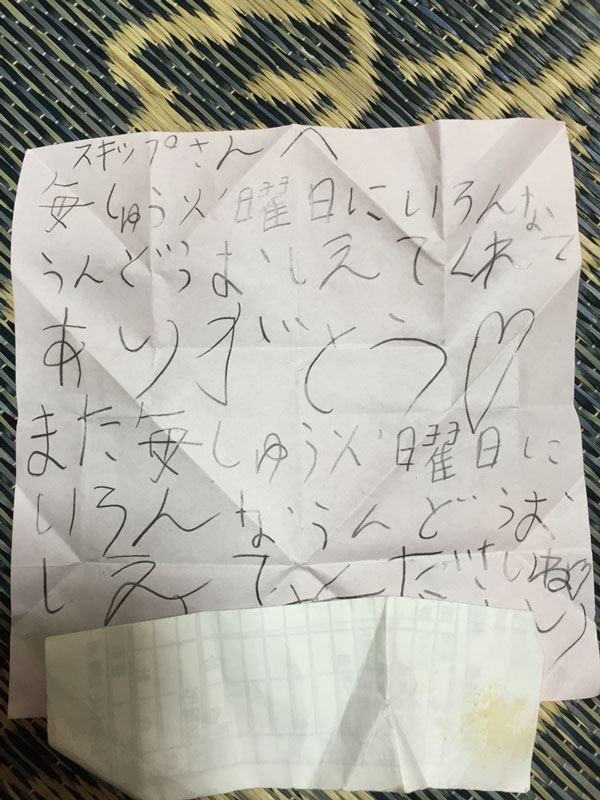 スキップさんへ
毎しゅう火曜日にいろんな
うんどうおしえてくれて
ありがとう♡
また毎しゅう火曜日に
いろんなうんどうお
しえてくださいね♡